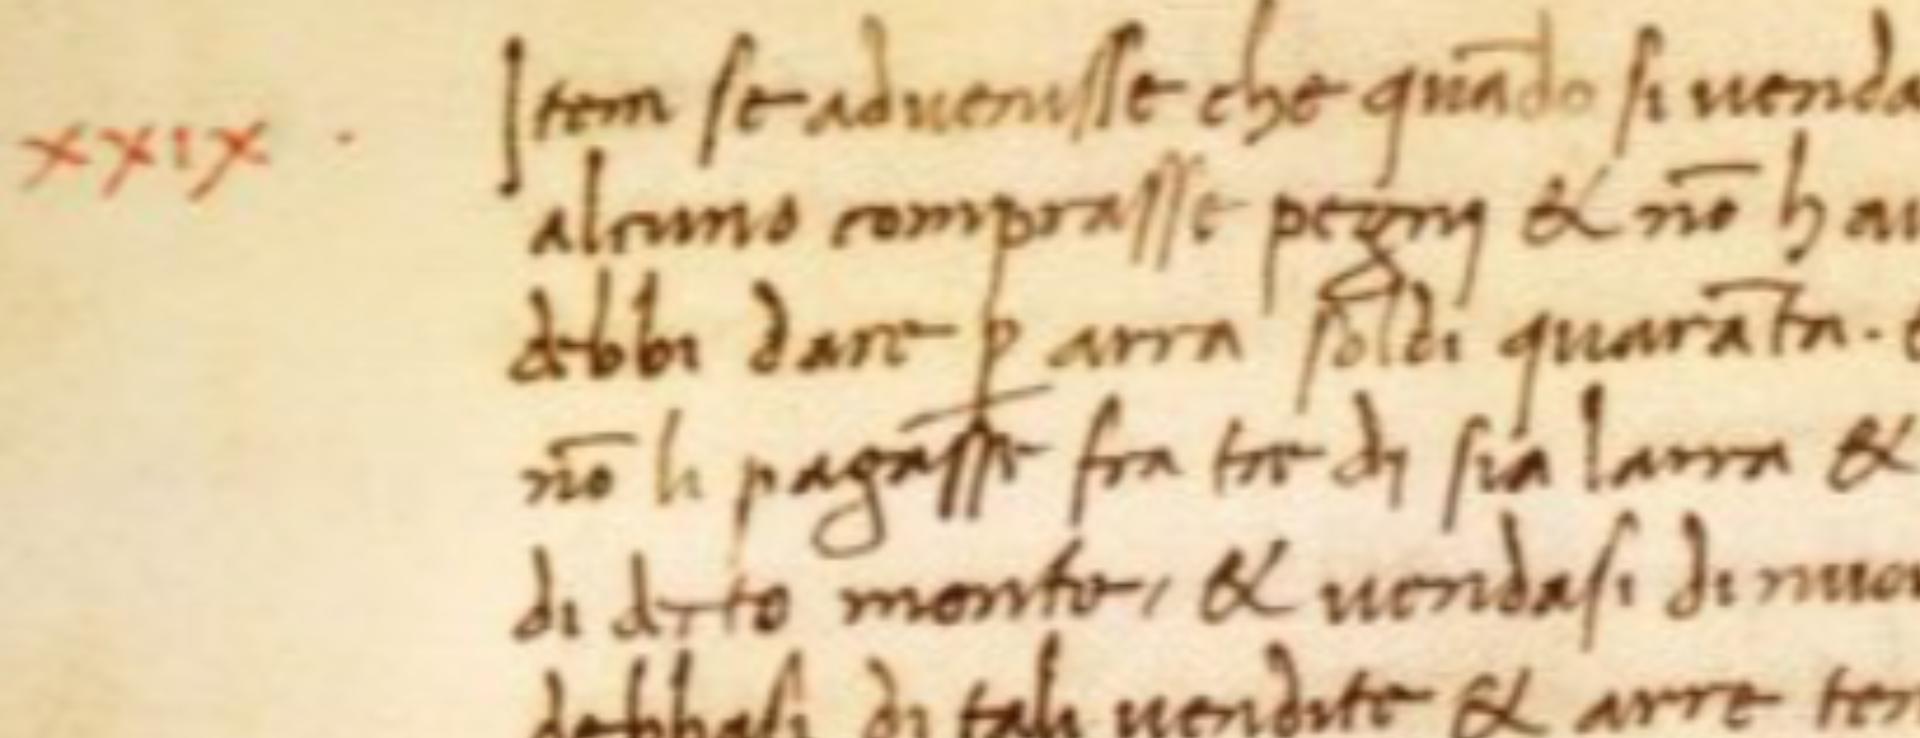 xxix ·
Item se advenisse che quādo si venda
alcuno comprasse pegnj & nō hau
debbi dare ꝑ arra soldi quarāta · e
nō li pagasse fra tre dj sia larra &
di detto monte, & vendasi di nuov
debbasi di tali vendite & arre ten